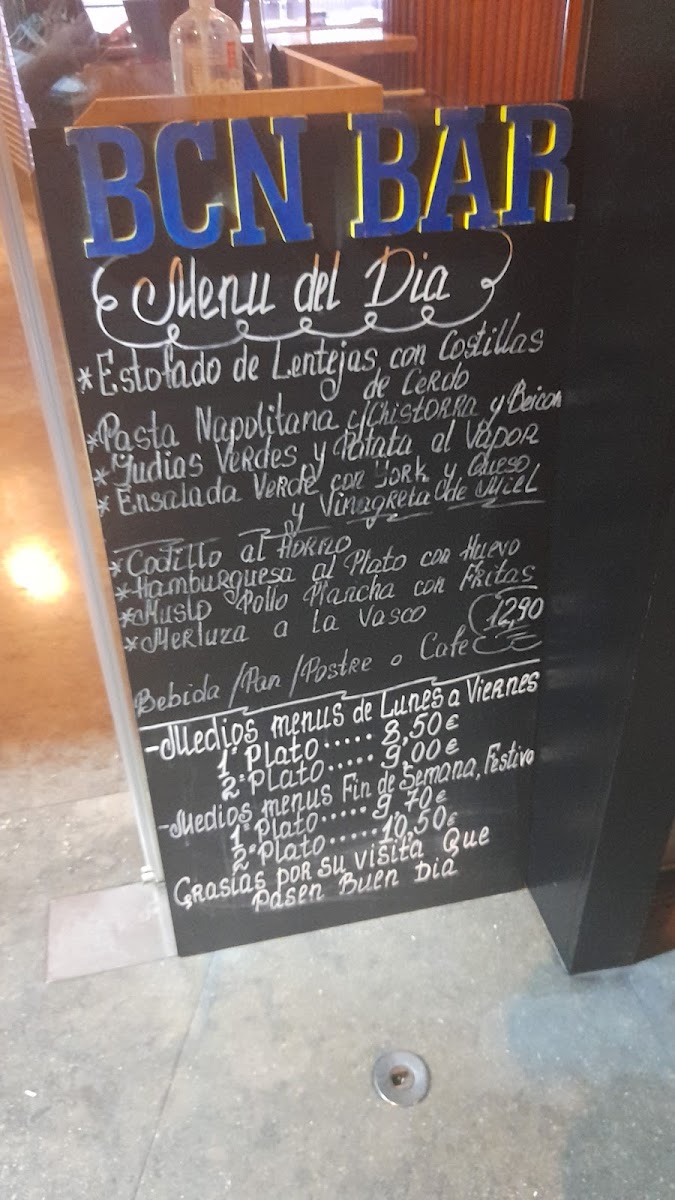 BCN BAR
Menu del Dia
*Estofado de Lentejas con Costillas
de Cerdo
*Pasta Napolitana c/Chistorra y Beicon
*Judias Verdes y Patata al Vapor
*Ensalada Verde con York y Queso
y Vinagreta de Miel
*Codillo al Horno
*Hamburguesa al Plato con Huevo
*Muslo Pollo Plancha con Fritas
*Merluza a la Vasco 12,90
Bebida/Pan/Postre o Cafe
-Medios menus de Lunes a Viernes
1º Plato..... 8,50€
2º Plato..... 9,00€
-Medios menus Fin de Semana, Festivo
1º Plato..... 9,70€
2º Plato..... 10,50€
Grasias por su visita Que
Pasen Buen Dia